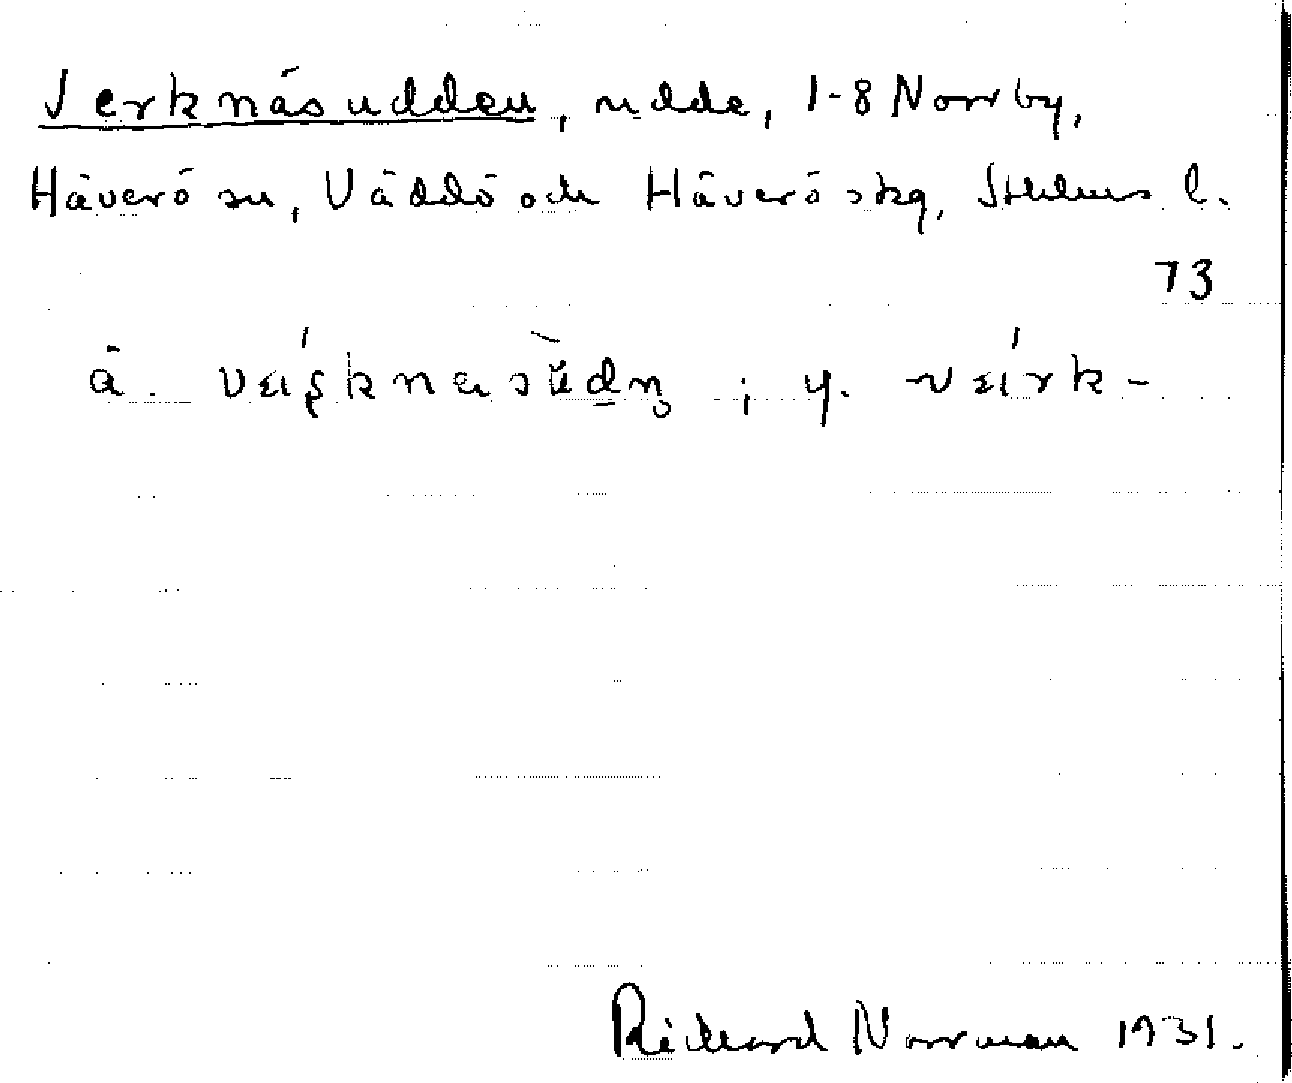 Verknäsudden, udde, 1-8 Norrby,
Häverö sn, Väddö och Häverö skg, Sthlms l.
73
ä. ; y.
Rickard Norrman 1931.